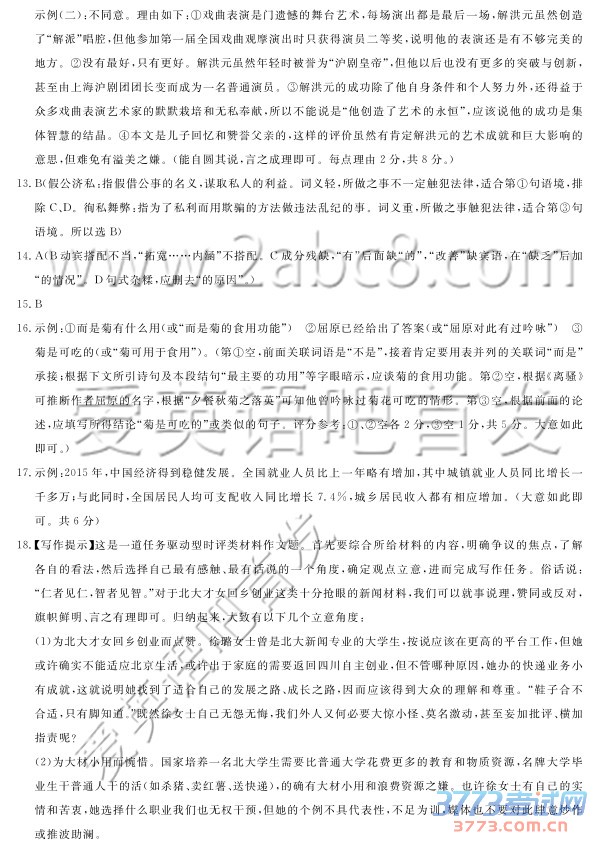 示例(二):不同意。理由如下:①戏曲表演是门遗憾的舞台艺术,每场演出都是最后一场,解洪元虽然创造
了“解派”唱腔,但他参加第一届全国戏曲观摩演出时只获得演员二等奖,说明他的表演还是有不够完美的
地方。②没有最好,只有更好。解洪元虽然年轻时被誉为“沪剧皇帝”,但他以后也没有更多的突破与创新,
甚至由上海沪剧团团长变而成为一名普通演员。③解洪元的成功除了他自身条件和个人努力外,还得益于
众多戏曲表演艺术家的默默栽培和无私奉献,所以不能说是“他创造了艺术的永恒”,应该说他的成功是集
体智慧的结晶。④本文是儿子回忆和赞誉父亲的,这样的评价虽然有肯定解洪元的艺术成就和巨大影响的
意思,但难免有溢美之嫌。(能自圆其说,言之成理即可。每点理由2分,共8分。)
13. B(假公济私:指假借公事的名义,谋取私人的利益。词义轻,所做之事不一定触犯法律,适合第①句语境,排
除C、D。徇私舞弊:指为了私利而用欺骗的方法做违法乱纪的事。词义重,所做之事触犯法律,适合第③句
语境。所以选B)
14. A(B动宾搭配不当,“拓宽……内涵”不搭配。C成分残缺,“有”后面缺“的”,“改善”缺宾语,在“缺乏”后加
“的情况”。D句式杂糅,应删去“的原因”。)
15. B
16. 示例:①而是菊有什么用(或“而是菊的食用功能”) ②屈原已经给出了答案(或“屈原对此有过吟咏”) ③
菊是可吃的(或“菊可用于食用”)。(第①空,前面关联词语是“不是”,接着肯定要用表并列的关联词“而是”
承接;根据下文所引诗句及本段结句“最主要的功用”等字眼暗示,应谈菊的食用功能。第②空,根据《离骚》
可推断作者屈原的名字,根据“夕餐秋菊之落英”可知他曾吟咏过菊花可吃的情形。第③空,根据前面的论
述,应填写所得结论“菊是可吃的”或类似的句子。评分参考:①、②空各2分,③空1分,共5分。大意如此
即可。)
17. 示例:2015年,中国经济得到稳健发展。全国就业人员比上一年略有增加,其中城镇就业人员同比增长一
千多万;与此同时,全国居民人均可支配收入同比增长7.4%,城乡居民收入都有相应增加。(大意如此即
可。共6分)
18.【写作提示】这是一道任务驱动型时评类材料作文题。首先要综合所给材料的内容,明确争议的焦点,了解
各自的看法,然后选择自己最有感触、最有话说的一个角度,确定观点立意,进而完成写作任务。俗话说:
“仁者见仁,智者见智。”对于北大才女回乡创业这类十分抢眼的新闻材料,我们可以就事说理,赞同或反对,
旗帜鲜明、言之有理即可。归纳起来,大致有以下几个立意角度:
(1)为北大才女回乡创业而点赞。徐璐女士曾是北大新闻专业的大学生,按说应该在更高的平台工作,但她
或许确实不能适应北京生活,或许出于家庭的需要返回四川自主创业,但不管哪种原因,她办的快递业务小
有成就,这就说明她找到了适合自己的发展之路、成长之路,因而应该得到大众的理解和尊重。“鞋子合不
合适,只有脚知道。”既然徐女士自己无怨无悔,我们外人又何必要大惊小怪、莫名激动,甚至妄加批评、横加
指责呢?
(2)为大材小用而惋惜。国家培养一名北大学生需要比普通大学花费更多的教育和物质资源,名牌大学毕
业生干普通人干的活(如杀猪、卖红薯、送快递),的确有大材小用和浪费资源之嫌。也许徐女士有自己的实
情和苦衷,她选择什么职业我们也无权干预,但她的个例不具代表性,不足为训,媒体也不要对此肆意炒作
或推波助澜。
www.2abc8.com
爱英语吧首发
爱英语吧首发
3773考试网
3773.com.cn